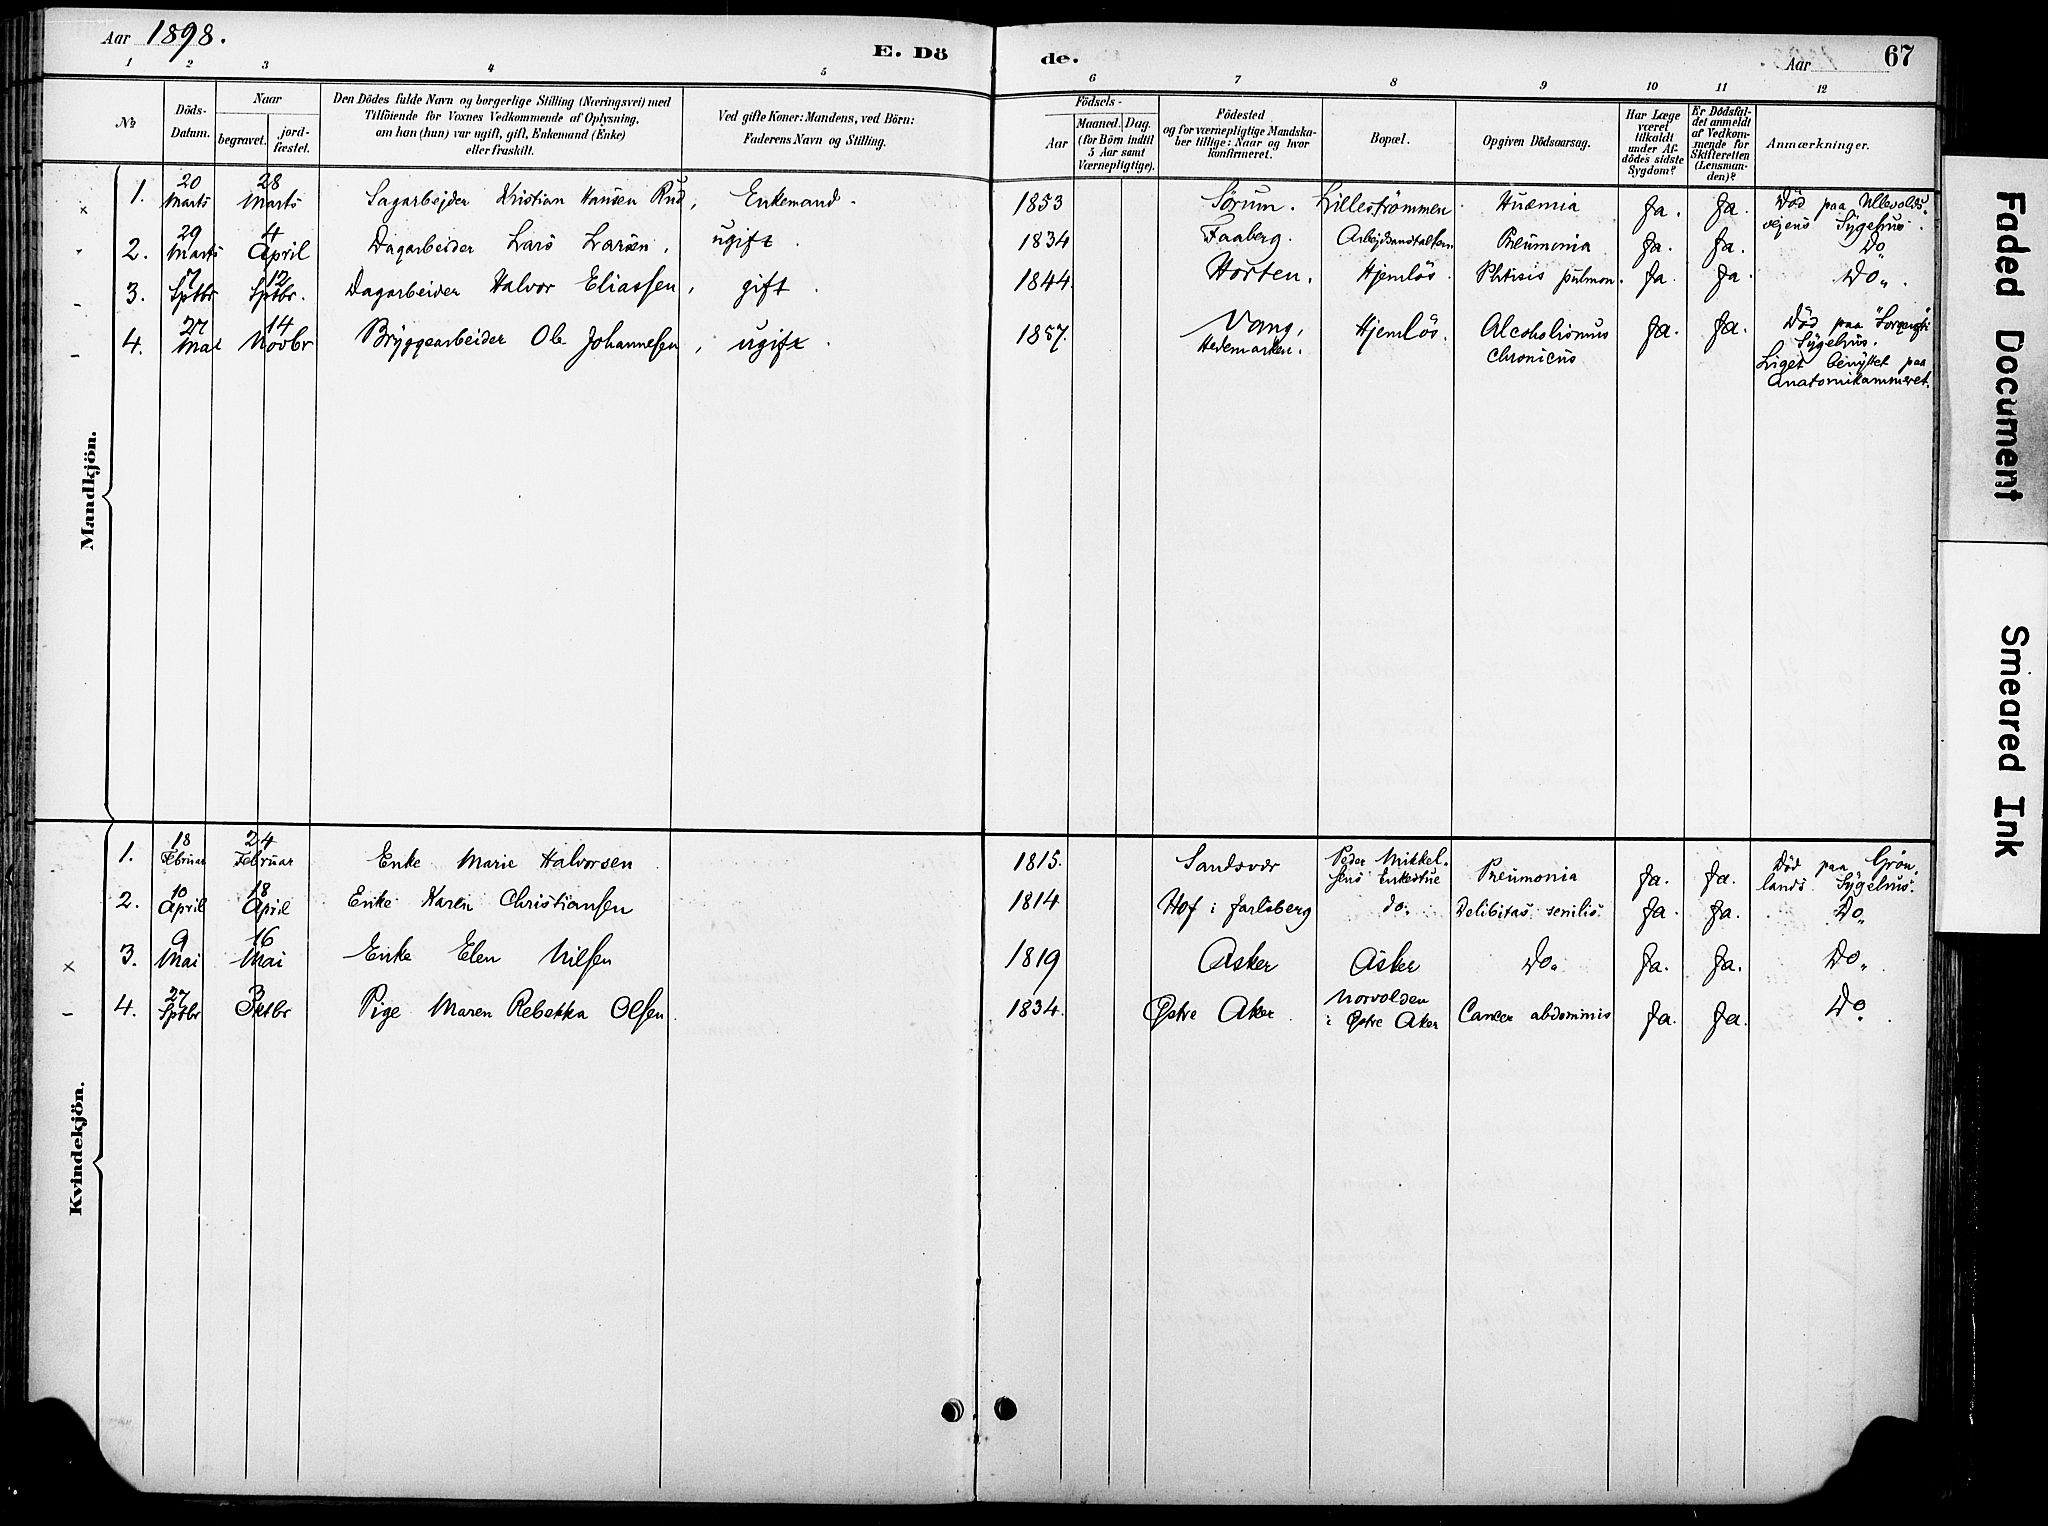 Aar 1898.
E. Dö
de.
Aar
67
1 2 3 4 5 6 7 8 9 10 11 12
No
Döds-Datum.
Naar
begravet.
jord-fæstet.
Den Dödes fulde Navn og borgerlige Stilling (Næringsvei) med
Tilföiende for Voxnes Vedkommende af Oplysning,
om han (hun) var ugift, gift, Enkemand (Enke)
eller fraskilt.
Ved gifte Koner: Mandens, ved Börn:
Faderens Navn og Stilling.
Födsels-
Aar
Maaned. Dag.
(for Börn indtil
5 Aar samt
Værnepligtige).
Födested
og for værnepligtige Mandska-
ber tillige: Naar og hvor
konfirmeret.
Bopæl.
Opgiven Dödsaarsag.
Har Læge
været
tilkaldt
under Af-
dödes sidste
Sygdom?
Er Dödsfal-
det anmeldt
af Vedkom-
mende for
Skifteretten
(Lensman-
den)?
Anmærkninger.
Mandkjön.
1. 20 Marts 28 Marts Sagarbejder Kristian Hansen Rud, Enkemand. 1853 Sørum. Lillestrømmen Ja. Ja. Död paa Ullevolds-
vejens Sygehus.
2. 29 Marts 4 April Dagarbeider Lars Larsen, ugift. 1834 Faaberg. Arbejdsanstalten Pneumonia Ja. Ja. Do
3. 7 Sptbr 12 Sptbr. Dagarbeider Halvor Eliassen, gift. 1844. Horten. Hjemlös. Phtisis pulmon. Ja. Ja. Do.
4. 27 Mai 14 Novbr Bryggearbeider Ole Johannesen, ugift. 1857. Vang, Hedemarken. Hjemlös. Alcoholismus chronicus Ja. Ja. Död paa
Sygehus.
Liget benyttet paa
Anatomikammeret.
Kvindekjön.
1. 18 Februar 24 Februar Enke Marie Halvorsen 1815. Sandsvær Peder Mikkel-
sens Enkestue Pneumonia Ja. Ja. Död paa Grøn-
lands Sygehus.
2. 10 April 18 April Enke Karen Christiansen 1814 Hof i Jarlsberg do. Delibitas senilis. Ja. Ja. Do
3. 9 Mai 16 Mai Enke Elen Nilsen 1819 Asker Asker Do. Ja. Ja. Do.
4. 27 Sptbr 3 Oktbr Pige Maren Rebekka Olsen. 1834. Østre Aker. Norvolden
i Østre Aker Cancer abdominis Ja. Ja. Do.
Faded Document
Smeared Ink